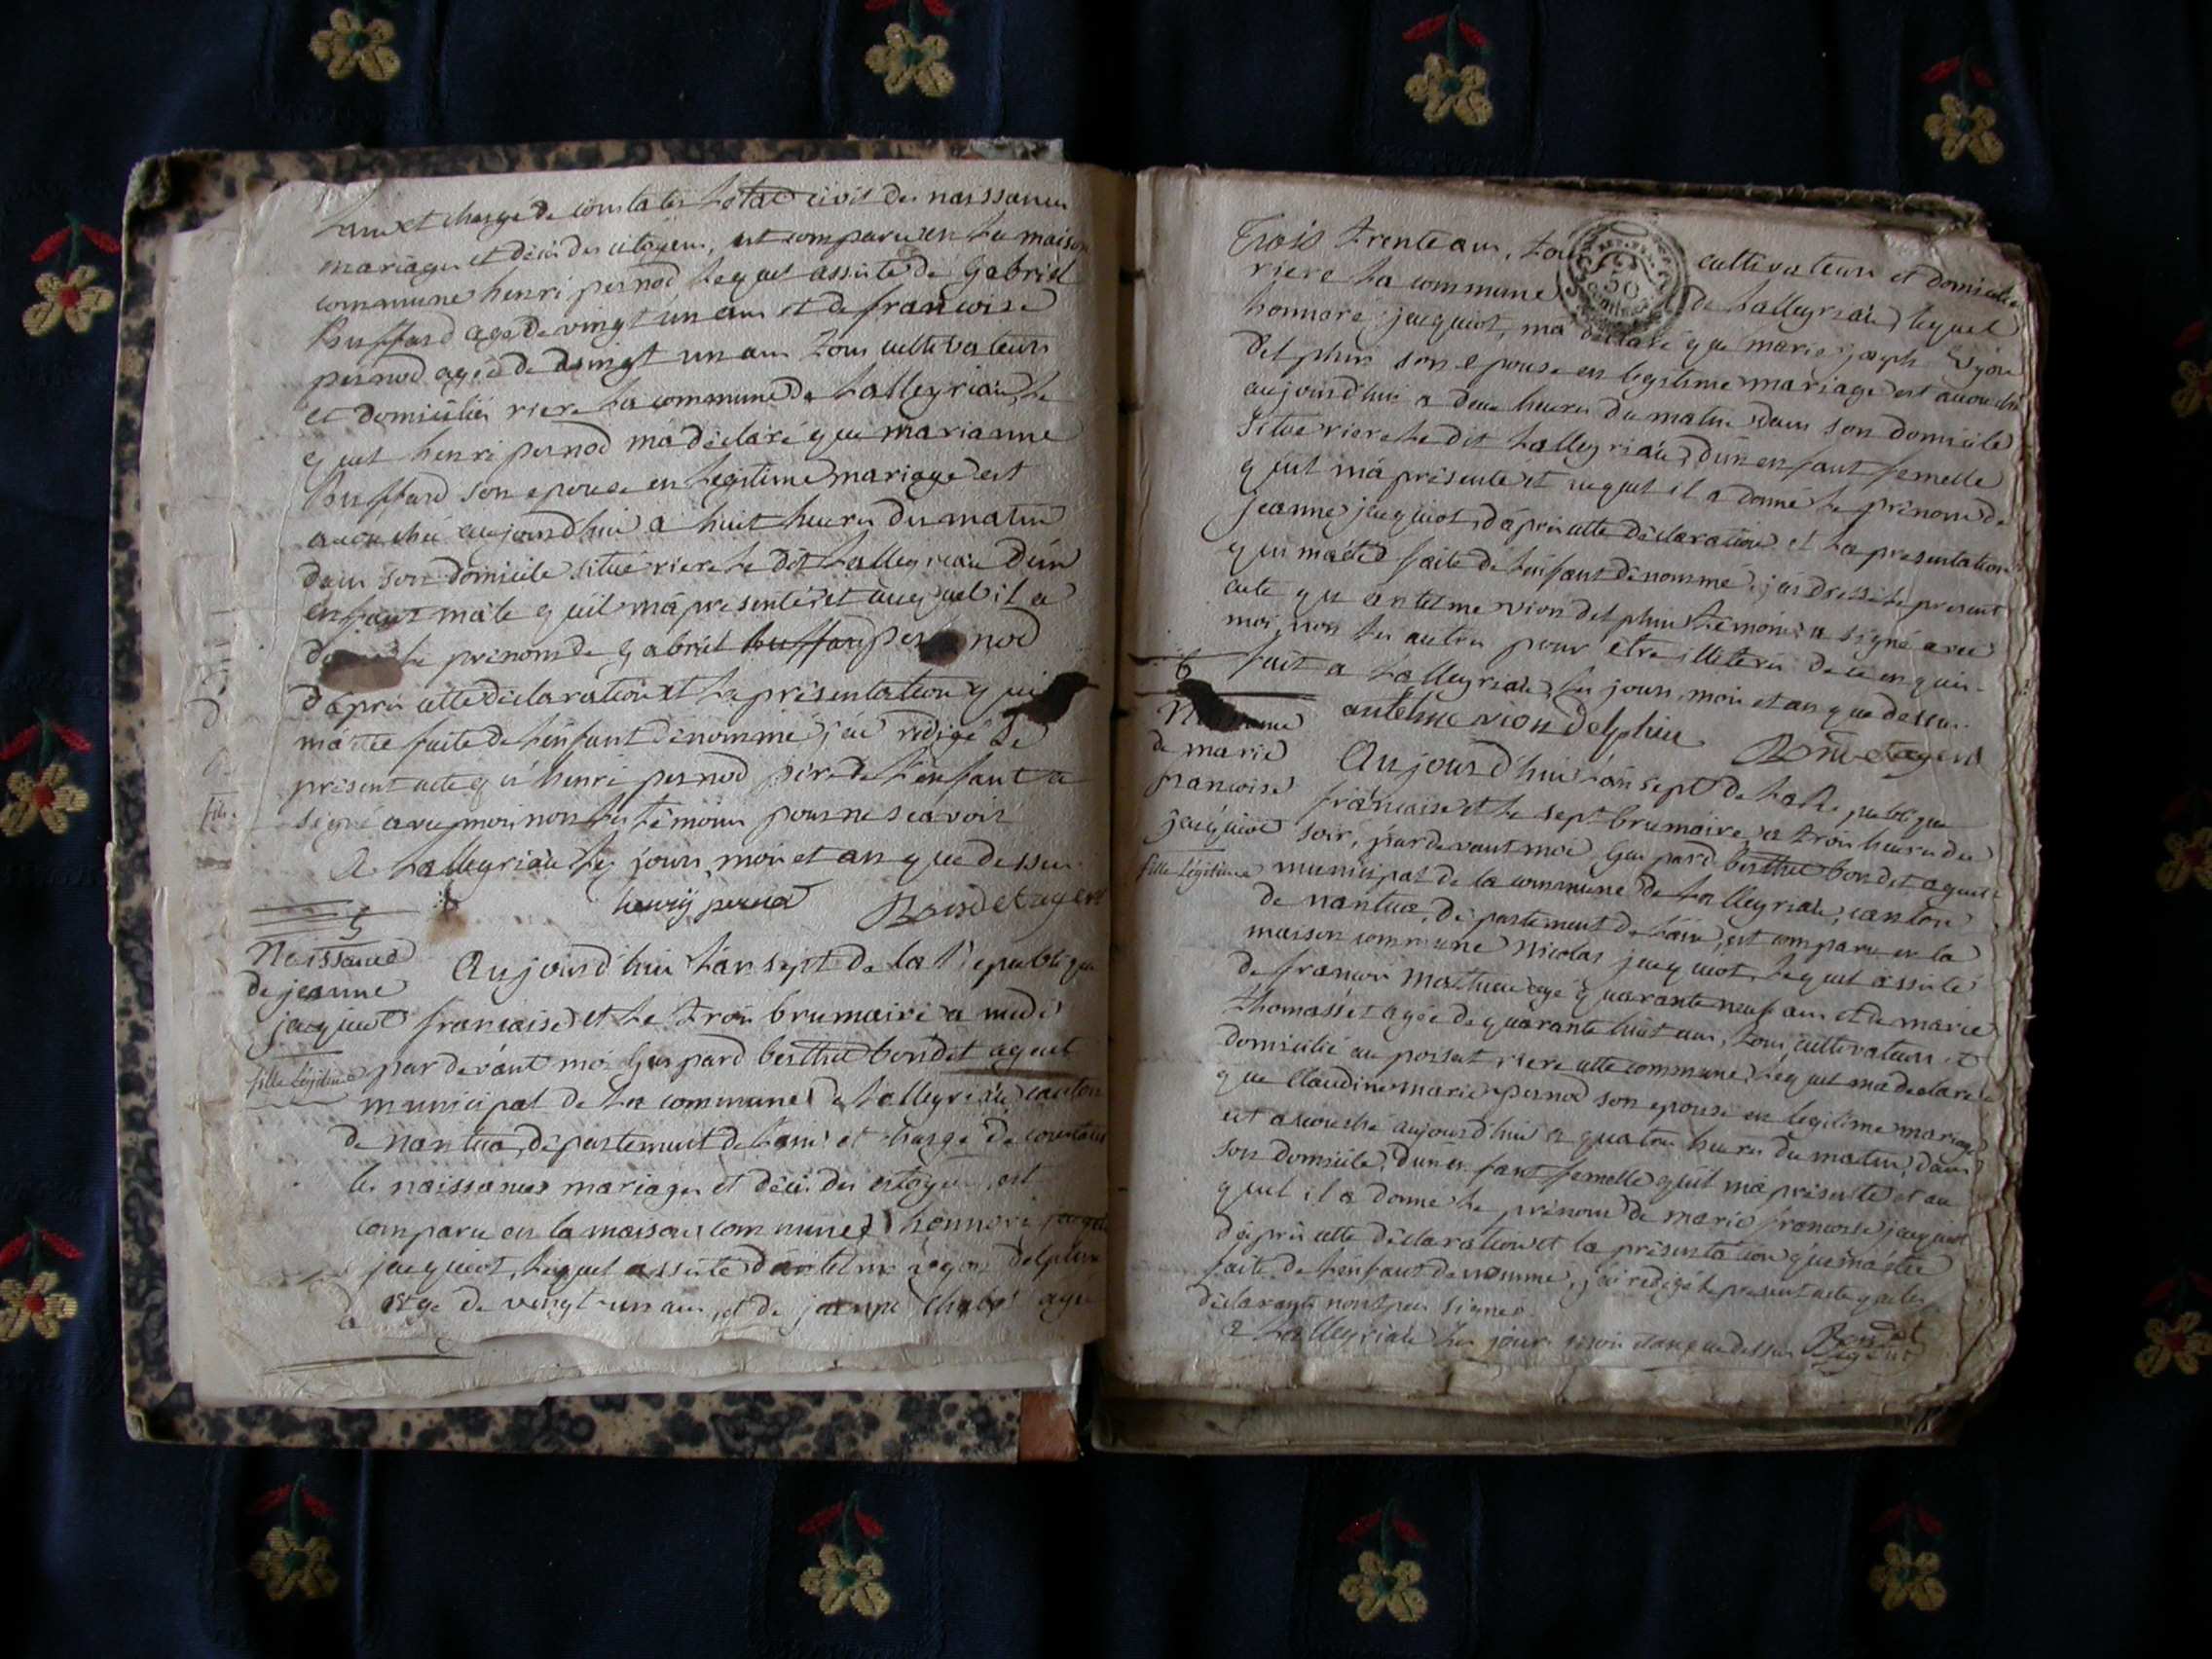 et chargé de constater l'état civil des naissances
mariages et décès des citoyens, est comparu en la maison
commune henri pernod lequel assisté de gabriel
buffard agé de vingt un ans et de francoise
pernod agée de vingt un ans tous cultivateurs
et domiciliés riere la commune de Lalleyriat, le
quel henri pernod m'a déclaré que marianne
buffard son epouse en légitime mariage est
accouchée aujourd'hui a huit heures du matin
dans son domicile situé riere le dit Lalleyriat d'un
enfant mâle qu'il m'a présenté et auquel il a
le prénom de gabriel buffard pernod
d'après cette déclaration et la présentation qui
m'a été faite de l'enfant dénommé j'ai rédigé le
présent acte qu'henri pernod père de l'enfant a
signé avec moi non les témoins pour ne scavoir
A Lalleyriat les jours, mois et an que dessus
henry pernod Bondet agent
5
Naissance
de jeanne
jacquiot
fille légitime
Aujourd'hui l'an sept de la Republique
francaise et le trois brumaire a midi
par devant moi Gaspard berthet bondet agent
municipal de la commune de Lalleyriat canton
de nantua, département de l'ain et chargé de constater
les naissances mariages et décès des citoyens, est
comparu en la maison commune honnoré
jacquiot, lequel assisté d'antelme vyon delphin
agé de vingt un ans, et de jeanne agée
Trois trente ans, tous cultivateurs et domiciliés
riere la commune de Lalleyriat, lequel
honnoré jacquiot, m'a déclaré que marie joseph vyon
delphin son epouse en legitime mariage est accouchée
aujourd'hui a deux heures du matin dans son domicile
situé riere le dit Lalleyriat, d'un enfant femelle
qu'il m'a présenté et auquel il a donné le prénom de
jeanne jacquiot, d'après cette déclaration et la presentation
qui m'a été faite de l'enfant dénommé, j'ai dressé le present
acte qu'antelme vion delphin témoin a signé avec
moi, non les autres pour etre illiterés de ce enquis.
fait a Lalleyriat les jours, mois et an que dessus.
antelme vion delphin Bondet agent
6
Naissance
de marie
francoise
jacquiot
fille légitime
Aujourd'hui l'an sept de la Republique
francaise et le sept brumaire a trois heures du
soir, pardevant moi Gaspard berthet bondet agent
municipal de la commune de Lalleyriat, canton
de nantua, département de l'ain, est comparu en la
maison commune Nicolas jacquiot, lequel assisté
de francois mathieu agé quarante neuf ans et de marie
thomasset agée de quarante huit ans, tous cultivateurs et
domiciliés au poisat riere cette commune, lequel m'a déclaré
que Claudine marie pernod son epouse en legitime mariage
est accouchée aujourd'hui a quatre heures du matin, dans
son domicile, d'un enfant femelle qu'il m'a présenté et au
quel il a donné le prénom de marie francoise jacquiot
d'après cette déclaration et la présentation qui m'a été
faite de l'enfant dénommé, j'ai redigé le present acte que les
déclarants n'ont pas signé
a Lalleyriat les jour mois et an que dessus Bondet
agent